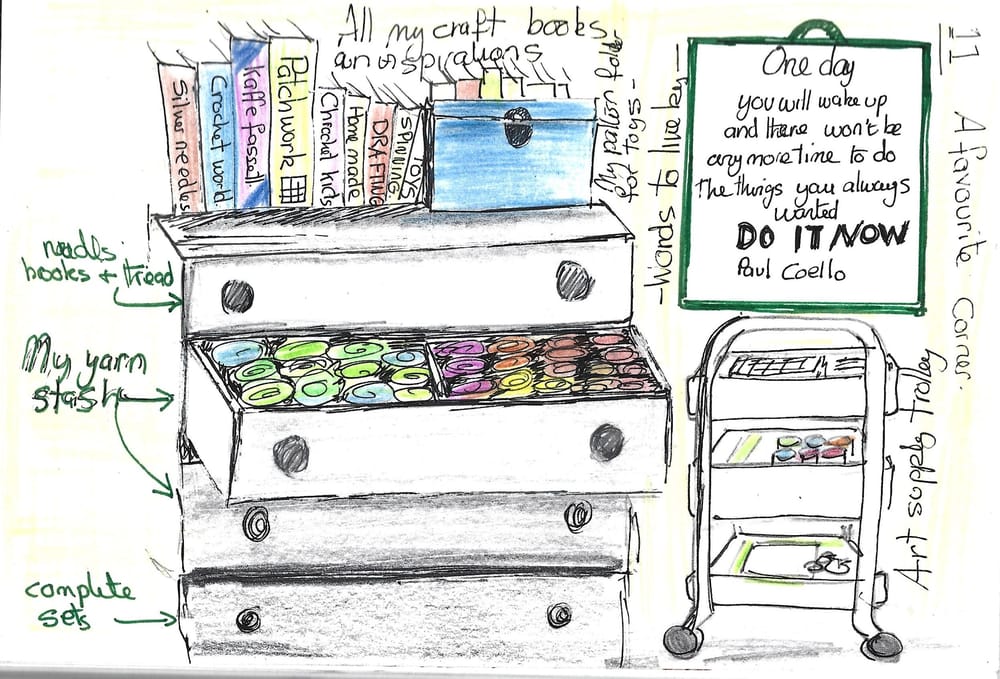 11 A favourite Corner.
All my craft books
an inspirations
Silver needles
Crochet world
Kaffe fassall
Patchwork
Chrochet kids
Home made
DRAFTING
SPINNING
TOYS
My pattern folder
for Toys-
-Words to live by-
One day
you will wake up
and there won't be
any more time to do
The things you always
wanted
DO IT NOW
Paul Coello
needls
books + tread
My yarn
stash
complete
sets
Art supply trolley